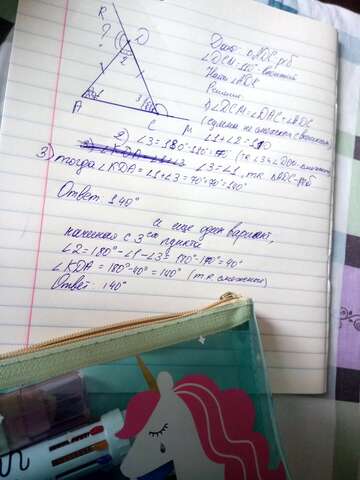 R
?
D
2
A
1
3
C
M
Дано: ΔADC - р/б
∠DCM = 110° - внешний
Найти ∠ADK
Решение
1) ∠DCM = ∠DAC + ∠ADC
(сумма не смежных с внешним)
∠1+∠2 = 110
2) ∠3 = 180° - 110° = 70 (т.к ∠3 и ∠DCM - смежные)
∠3 = ∠1, т.к. ΔADC - р/б
3) тогда ∠KDA = ∠1+∠3 = 70°+70° = 140°
Ответ 140°
и еще один вариант,
начиная с 3его пункта
∠2 = 180° - ∠1 - ∠3 = 180° - 140° = 40°
∠KDA = 180° - 40° = 140° (т.к. смежные)
Ответ: 140°